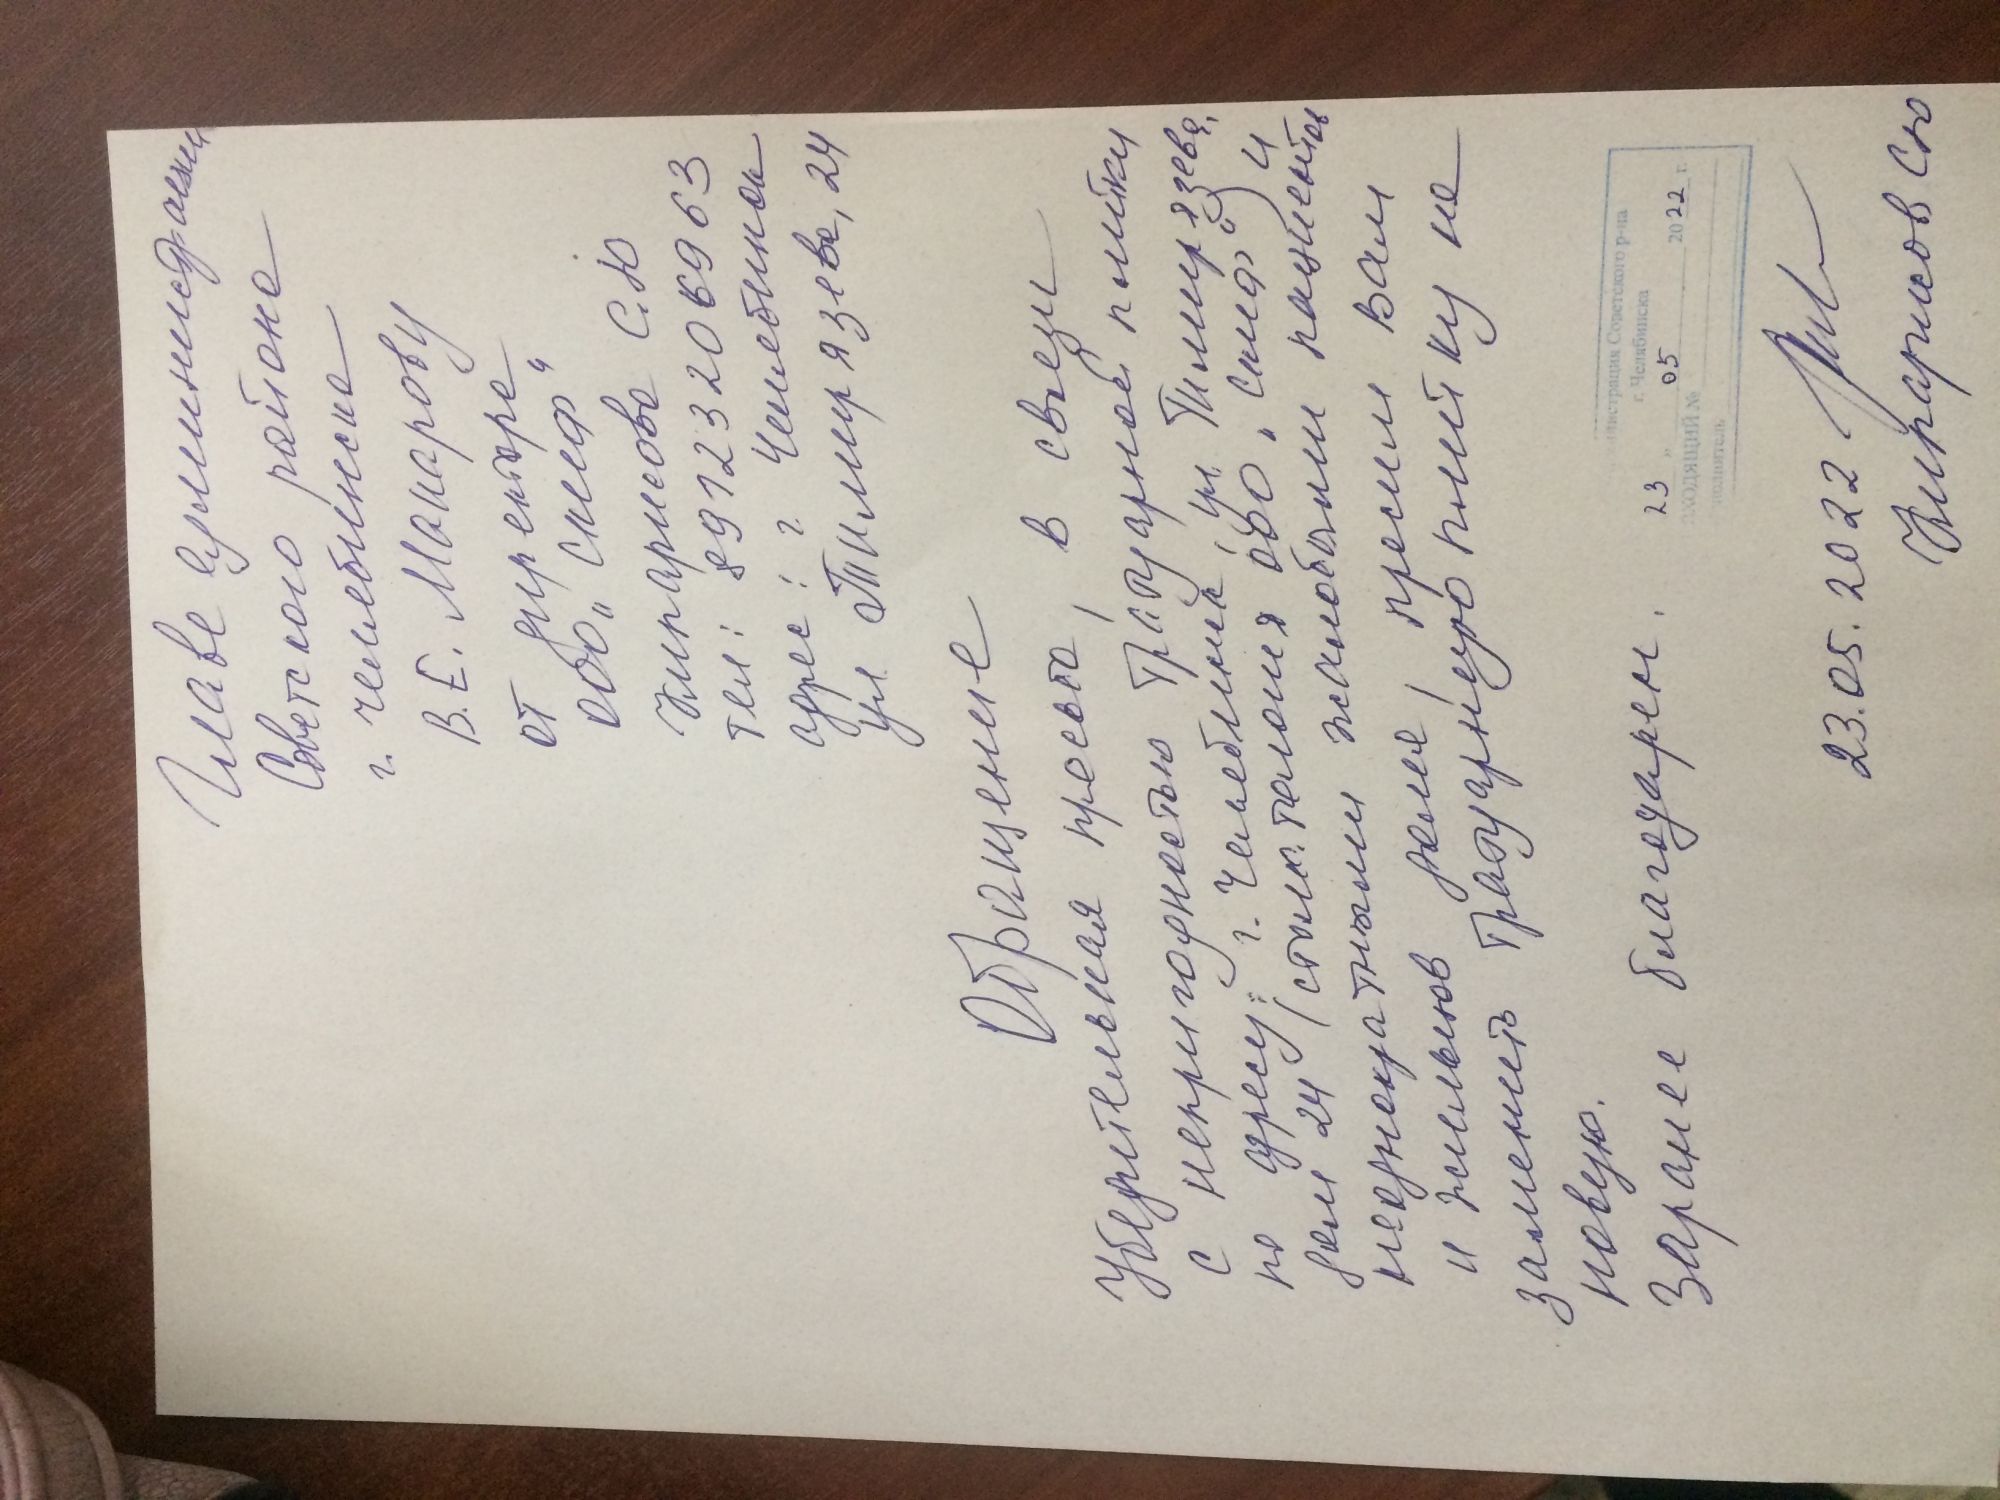 Главе администрации
Советского района
г. Челябинска
В.Е. Макарову
от директора
ООО „Скиф“
С.Ю
тел: 89123206963
адрес: г. Челябинск
ул Тимирязева, 24
Обращение
Убедительная просьба, в связи
с непригодностью тротуарной плитки
по адресу: г. Челябинск, ул. Тимирязева,
дом 24 (стоматология ООО „Скиф“) и
неоднократными жалобами пациентов
и жильцов дома, просим Вам
заменить тротуарную плитку на
новую.
Заранее благодарен.
Администрация Советского р-на
г. Челябинска
23 „ 05 2022 г.
ВХОДЯЩИЙ №
23.05.2022